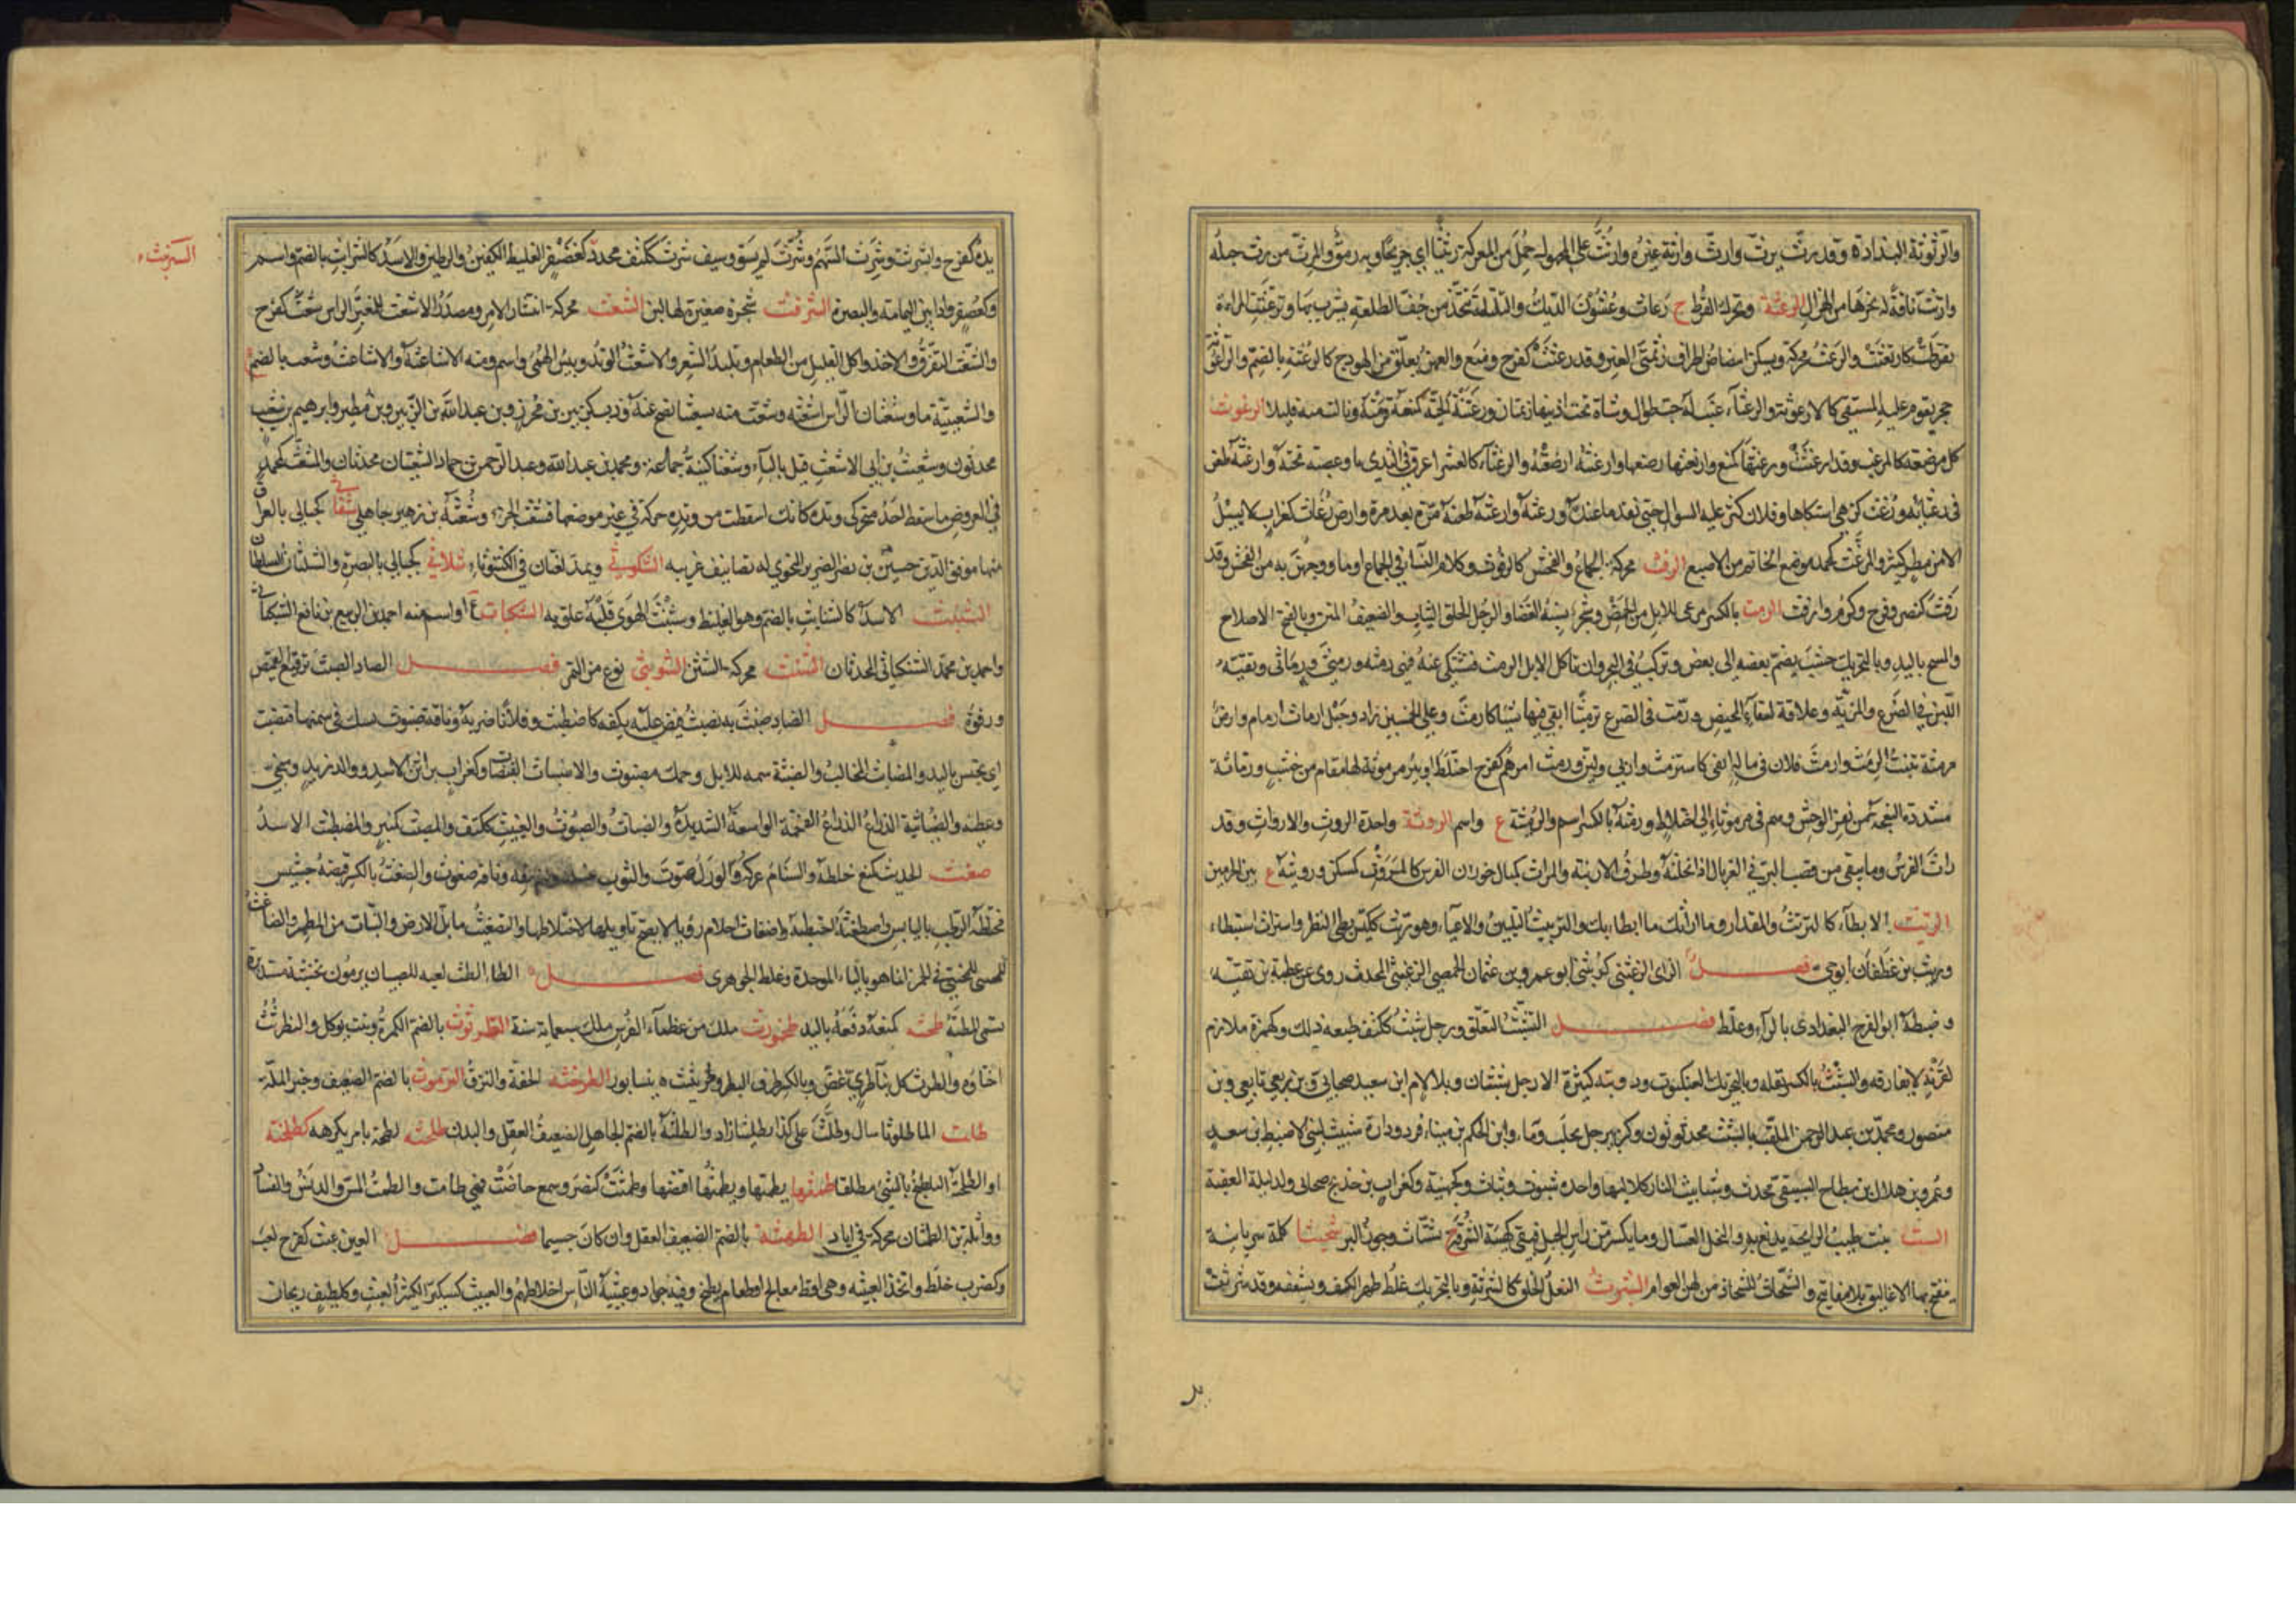 والرثوثة البذاذة وقد رث يرث وارث وارثه غيره وارتث على المجهول حمل من المعركة رثيثا اي جريحا وبه رمق والمرث من رث حبله
وارتث ناقة له نحرها من الهزال الرعثة ويحرك القرط ج رعاث وعثنون الديك والتلتلة تتخذ من جف الطلعة يشرب بها وترعثت المراة
تقرطت كارتعثت والرعث محركة ويسكن ابيضاض اطراف زنمتي العنز وقد رعثت كفرح ومنع والعهن يعلق من الهودج كالرعثة بالضم
حجر يقوم عليه المستقي كالارعوثة والرعثاء عنب له حب طوال وشاة تحت اذنيها زنمتان ورعثته الحية كمنعه قرمته ونالت منه قليلا الرغوث
كل مرضعة كالمرغث وقد ارغثت ورغثها كمنع وارتغثها رضعها وارغثته ارضعته والرغثاء كالعشراء عرق في الثدي او عصبة تحته وارغثه طعن
في رغثائه ورغثت كزهي اشتكاها وفلان كثر عليه السؤال حتى نفد ما عنده ورغثه وارغثه طعنه مرة بعد مرة وارض رغاث كغراب لا تسيل
الا من مطر كثير والمرغث كمحمد موضع الخاتم من الاصبع الرفث محركة الجماع والفحش كالرفوث وكلام النساء في الجماع او ما ووجهن به من الفحش وقد
رفث كنصر وفرح وكرم وارفث الرمث بالكسر مرعى للابل من الحمض وشجر يشبه الغضا والرجل الخلق الثياب والضعيف المتن وبالفتح الاصلاح
والمسح باليد وبالتحريك خشب يضم بعضه الى بعض ويركب في البحر وان تاكل الابل الرمث فتشتكي عنه فهي رمثة ورمثى ورماثى وبقية
اللبن في الضرع والمزية وعلاقة لسقاء المخيض ورمث في الضرع ترميثا ابقى فيها شيئا كارمث وعلى الخمسين زاد وحبل ارماث ارمام وارض
مرمثة تنبت الرمث وارمث فلان في ماله ابقى كاسترمث واربى ولين ورمث امرهم كفرح اختلط او بئر مرموثة لها مقام من خشب ورماثة
مشددة النعجة من بقر الوحش وهم في مرموثاء اي اختلاط ورمثة بالكسر اسم والرميثة ع واسم الروثة واحدة الروث والارواث وقد
راث الفرس وما يبقى من قصب البر في الغربال اذا نخلته وطرف الارنبة والمراث كمال خوران الفرس كالمروث كمسكن ورويثة ع بين الحرمين
الريث الابطاء كالتريث والمقدار وما اراثك ما ابطا بك والتربيث التليين والاعياء وهو ريث ككيس بطئ النظر واستراث استبطاء
وريث بن غطفان ابو حي فصل الزاي الزغبثي ابو عمرو بن عثمان الحمصي الزغبثي المحدث روى عن عطية بن بقية
وضبطه ابو الفرج البغدادي بالراء وغلط فصل التشبث التعلق ورجل شبث ككتف طبعه ذلك وكهمزة ملازم
لقرنه لا يفارقه والشبث بالكسر بقلة وبالتحريك العنكبوت ودويبة كثيرة الارجل شبثان وبلا لام ابن سعيد صحابي وبن ربعي تابعي وبن
منصور ومحمد بن عبد الرحمن الملقب بالشبث محدثون وكزبير جبل بحلب وماء وابن الحكم بن ميناء فرد ودارة شبيث لبني الاضبط بن سعد
وعمرو بن هلال بن بطاح الشبيثي محدث وشبابيث النار كلاليبها واحده شبوث وشباث وكجهينة وكغراب بن خديج صحابي ولد ليلة العقبة
الشث نبت طيب الرايحة يدبغ به والنحل العسال وما يكسر من راس الجبل فيبقى كهيئة الشرفة ج شثاث وجوز البر شحيثا كلمة سريانية
تنفتح بها الاغاليق بلا مفاتيح والشحاث للشحاذ من لحن العوام الشرث النعل الخلق كالشرثة وبالتحريك غلظ ظهر الكف وتشققه وقد شرثت
الشرنبث
يده كفرح وانشرثت وشرث السهم وشرث لم يسو وسيف شرث ككتف محدد كغضنفر الغليظ الكفين والرجلين والاسد كالشرابث بالضم واسم
وكعصفر واد بين اليمامة والبصرة الشرفث شجرة صغيرة لها لبن الشعث محركة انتشار الامر ومصدر الاشعث للمغبر الراس شعث كفرح
والتشعث التفرق والاخذ واكل القليل من الطعام وتلبد الشعر والاشعث الوتد ويبيس البهمى واسم ومنه الاشاعثة والاشاعث وشعث بالضم
والشعيثية ماء وشعثان الراس اشعثه وشعث منه تشعيثا نضح عنه وذب وكزبير بن محرز وبن عبد الله بن الزبير وبن مطير وابرهيم بن شعيث
محدثون وشعيث بن ابي الاشعث قيل بالباء وشعثا كنية جماعة ومحمد بن عبد الله وعبد الرحمن بن حماد الشعيثيان محدثان والمشعث كمحمد
في العروض ما سقط احد متحركي وتده كانك اسقطت من وتده حركة في غير موضعها فتشعث الجزء وشعثة بن زهير جاهلي شفاثى كحبالى بالعراق
منها موفق الدين حسين بن نصر الضرير النحوي له تصانيف غريبة الشكوثى ويمد لغتان في الكشوثاء شلاثى كحبالى بالبصرة والشلثان السلطان
الشنبث الاسد كالشنابث بالضم وهو الغليظ وشنبث الهوى قلبه علق به الشكبات ع او اسم منه احمد بن الربيع بن نافع
واحمد بن محمد المحدثان الشنث محركة الشثن الشويثى نوع من التمر فصل الصاد الصبث ترقيع القميص
ورفوه فصل الضاد ضبث به يضبث قبض عليه بكفه كاضطبث وفلانا ضربه وناقة ضبوث يشك في سمنها فتضبث
اي تجس باليد والمضابث المخالب والضبثة سمة للابل وجمل مضبوث والاضباث القبضات وكغراب براثن الاسد ووالد زيد
والضباثية الذراع الضخمة الواسعة الشديدة والضباث والضبوث والضبث ككتف والمضبث كمنبر والمضطبث الاسد
ضغث الحديث كمنع خلطه والسنام عركه والورل صوت والثوب وناقة ضغوث والضغث بالكسر قبضة حشيش
مختلطة الرطب باليابس واضطغثه احتطبه واضغاث احلام رؤيا لا يصح تاويلها لاختلاطها والتضغيث ما بل الارض والنبات من المطر والضاغث
للمختبئ في الخمر انما هو بالباء الموحدة وغلط الجوهري فصل الطاء الطث لعبة للصبيان يرمون بخشبة مستديرة
تسمى المطثة طحثه كمنعه دفعه باليد طخمورث ملك من عظماء الفرس ملك سبعماية سنة الطرثوث بالضم الكمرة ونبت يوكل والتطرثث
اجتناؤه والطرث كل نبات طري غض وبالكسر طرف البظر وطريثيث ة بنيسابور الطرخثة الخفة والنزق الطرموث بالضم الضعيف وخبز الملة
طلث الماء طلوثا سال وطلث على كذا تطليثا زاد والطلثة بالضم الجاهل الضعيف العقل والبدن طلحثه لطخه بامر يكرهه كطلخثه
او الطلخثة التلطخ بالشيء مطلقا طمثها يطمثها ويطمثها افتضها وطمثت كنصر وسمع حاضت فهي طامث والطمث المس والدنس والفساد
وواثلة بن الطمثان محركة في اياد الطهثة بالضم الضعيف العقل وان كان جسيما فصل العين عبث كفرح لعب
وكضرب خلط واتخذ العبيثة وهي اقط معالج او طعام يطبخ وفيه جراد وعبيثة الناس اخلاطهم والعبيث كسكير الكثير العبث وكالطيف ريحان